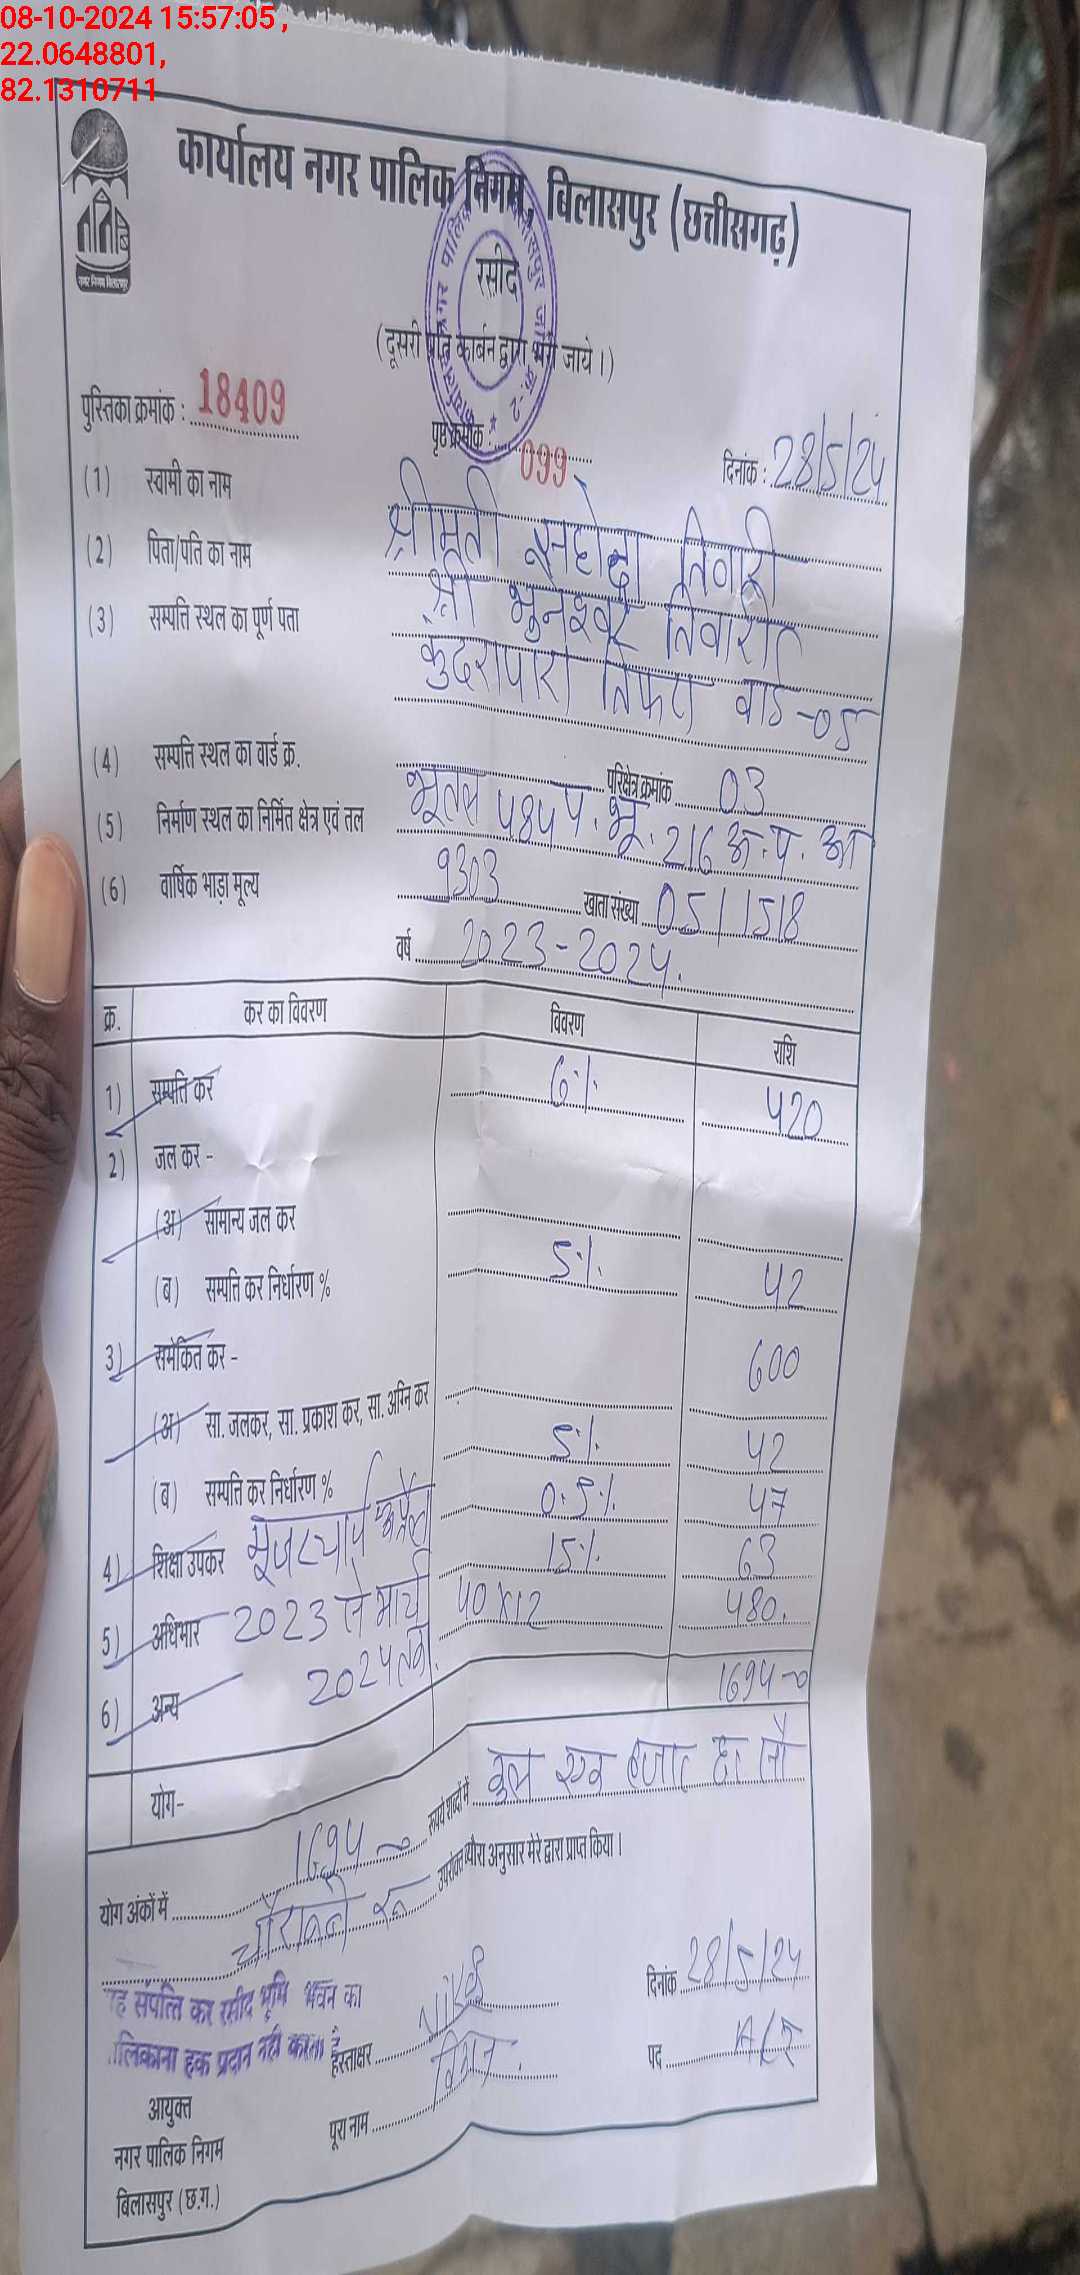 08-10-2024 15:57:05,
22.0648801,
82.1310711
कार्यालय नगर पालिक निगम, बिलासपुर (छत्तीसगढ़)
नगर निगम बिलासपुर
रसीद
(दूसरी प्रति कार्बन द्वारा भरी जाये।)
पुस्तिका क्रमांक : 18409 पृष्ठ क्रमांक : 099 दिनांक : 28/5/24
(1) स्वामी का नाम श्रीमती सहोद्रा तिवारी
(2) पिता/पति का नाम श्री भुनेश्वर तिवारी
(3) सम्पत्ति स्थल का पूर्ण पता कुंदरापारा तिफरा वार्ड-05
(4) सम्पत्ति स्थल का वार्ड क्र. परिक्षेत्र क्रमांक 03
(5) निर्माण स्थल का निर्मित क्षेत्र एवं तल भूतल 484 प. भू. 216 अ.प. आ
(6) वार्षिक भाड़ा मूल्य 9303 खाता संख्या 05/1518
वर्ष 2023-2024.
क्र. कर का विवरण विवरण राशि
1) सम्पत्ति कर 6% 420
2) जल कर -
(अ) सामान्य जल कर
(ब) सम्पत्ति कर निर्धारण % 5% 42
3) समेकित कर - 600
(अ) सा. जलकर, सा. प्रकाश कर, सा. अग्नि कर
(ब) सम्पत्ति कर निर्धारण % 5% 42
4) शिक्षा उपकर 0.5% 47
5) अधिभार 15% 63
6) अन्य यूजर चार्ज अप्रैल 2023 से मार्च 2024 तक. 40x12 480.
योग- 1694-0
योग अंकों में 1694-0 रूपये शब्दों में कुल एक हजार छः सौ
चौरानबे रू उपरोक्त ब्यौरा अनुसार मेरे द्वारा प्राप्त किया।
यह संपत्ति कर रसीद भूमि भवन का
मालिकाना हक प्रदान नही करता है
हस्ताक्षर दिनांक 28/5/24
पूरा नाम पद
आयुक्त
नगर पालिक निगम
बिलासपुर (छ.ग.)